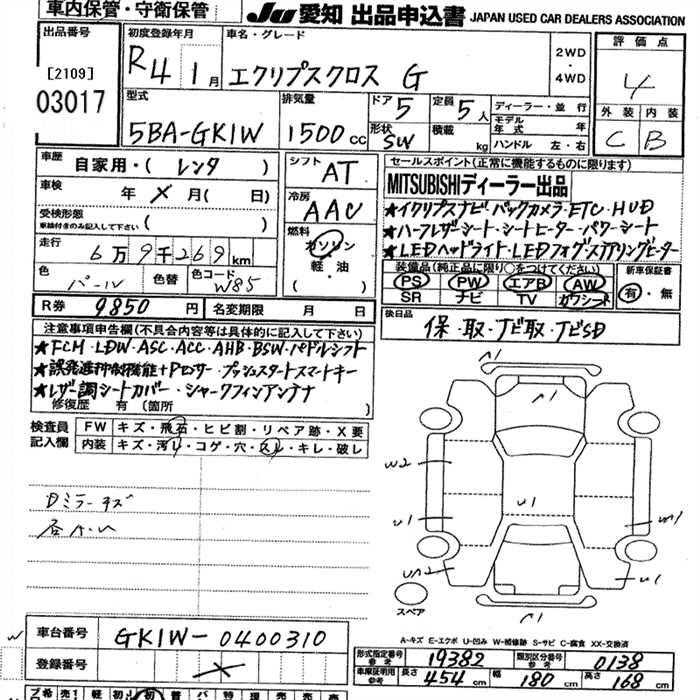 車内保管・守衛保管
JU 愛知 出品申込書 JAPAN USED CAR DEALERS ASSOCIATION
出品番号
[2109]
03017
初度登録年月
R4 1月
車名・グレード
エクリプスクロス G
2WD
・
4WD
評価点
4
外装 内装
C B
型式
5BA-GK1W
排気量
1500cc
ドア 5
形状 SW
定員 5人
積載 kg
ディーラー・並行
モデル年式 年
ハンドル 左・右
車歴
自家用・( レンタ )
車検
年 × 月( 日)
受検形態
車検付きのみ記入して下さい ( )
走行
6万9千269km
色
パール
色替
色コード
W85
シフト
AT
冷房
AAC
燃料
ガソリン
・軽・油
( )
セールスポイント(正常に機能するものに限ります)
MITSUBISHIディーラー出品
★イクリプスナビ・バックカメラ・ETC・HUD
★ハーフレザーシート・シートヒーター・パワーシート
★LEDヘッドライト・LEDフォグ・ステアリングヒーター
装備品(純正品に限り○をつけてください)
PS PW エアB AW
SR ナビ TV カワシート
新車保証書
有・無
R券
9850円
名変期限 月 日
後日品
保・取・ナビ取・ナビSD
注意事項申告欄(不具合内容等は具体的に記入して下さい)
★FCM・LDW・ASC・ACC・AHB・BSW・パドルシフト
★誤発進抑制機能+Pセンサー・プッシュスタートスマートキー
★レザー調シートカバー・シャークフィンアンテナ
修復歴 有(箇所 )
検査員記入欄
FW キズ・飛石・ヒビ割・リペア跡・X要
内装 キズ・汚レ・コゲ・穴・スレ・キレ・破レ
Dミラーキズ
各
^1
^1
W2
U1
U1
W1
UA2
U1
^1
スペア
A-キズ E-エクボ U-凹み W-補修跡 S-サビ C-腐食 XX-交換済
車台番号
GK1W-0400310
登録番号
×
形式指定番号
参考
19382
類別区分番号
参考
0138
車庫証明用
参考
長さ 454cm
幅 180cm
高さ 168cm